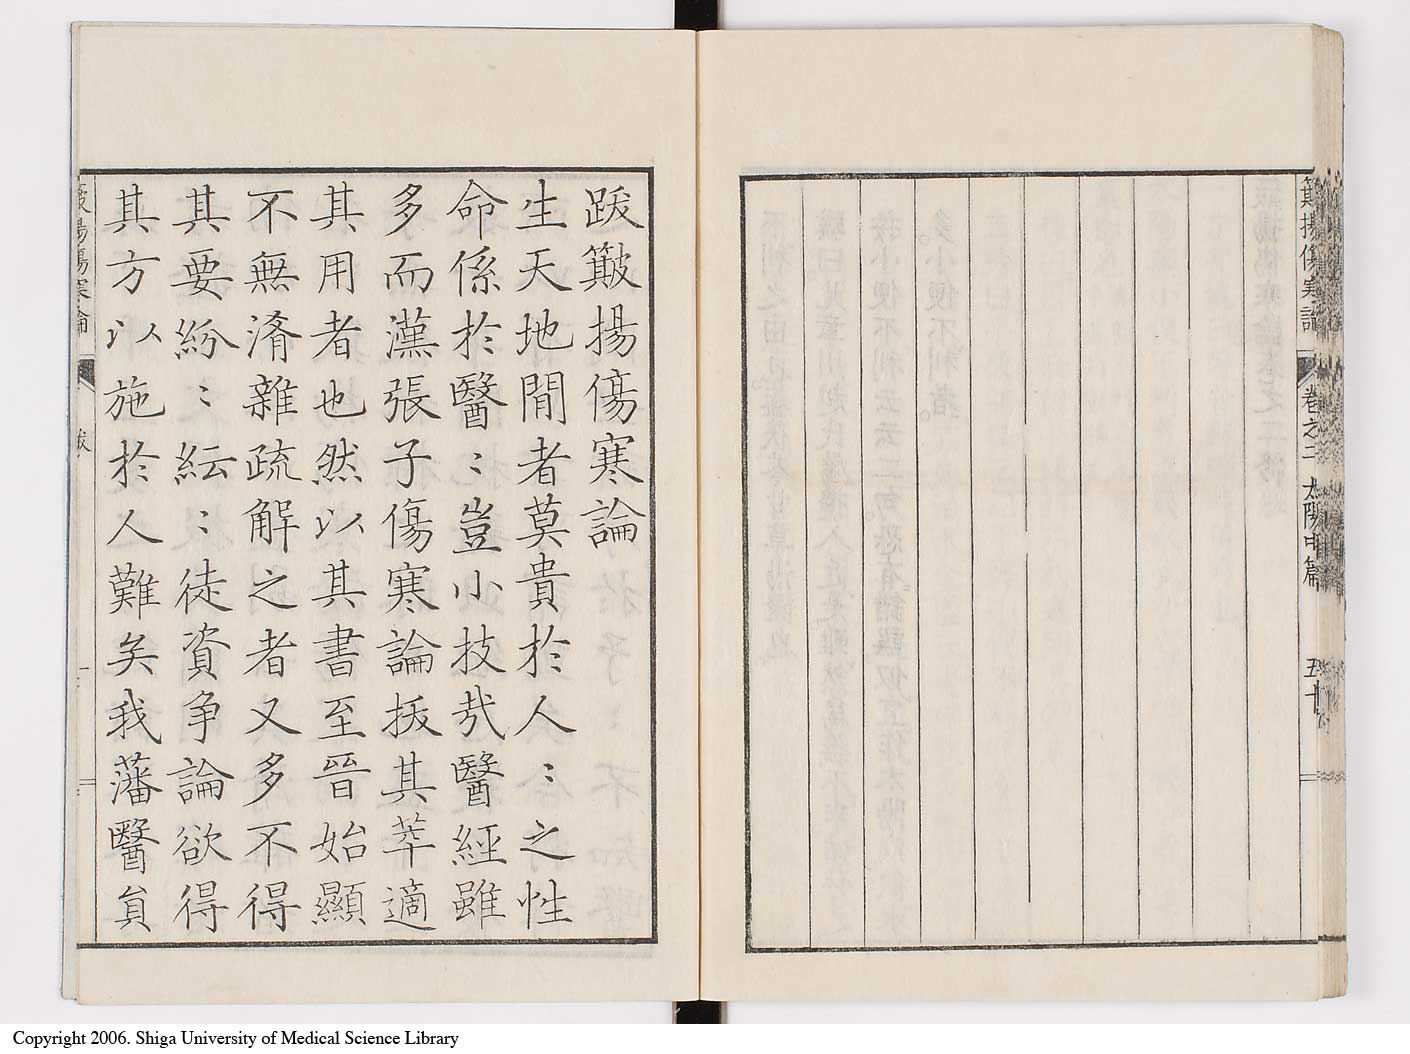 簸揚傷寒論 卷之二 太陽中篇 五十
跋簸揚傷寒論
生天地間者莫貴於人〻之性
命係於醫〻豈小技㢤醫經雖
多而漢張子傷寒論拔其萃適
其用者也然以其書至晉始顯
不無淆雜疏解之者又多不得
其要紛〻紜〻徒資爭論欲得
其方以施於人難矣我藩醫員
簸揚傷寒論 跋
Copyright 2006. Shiga University of Medical Science Library